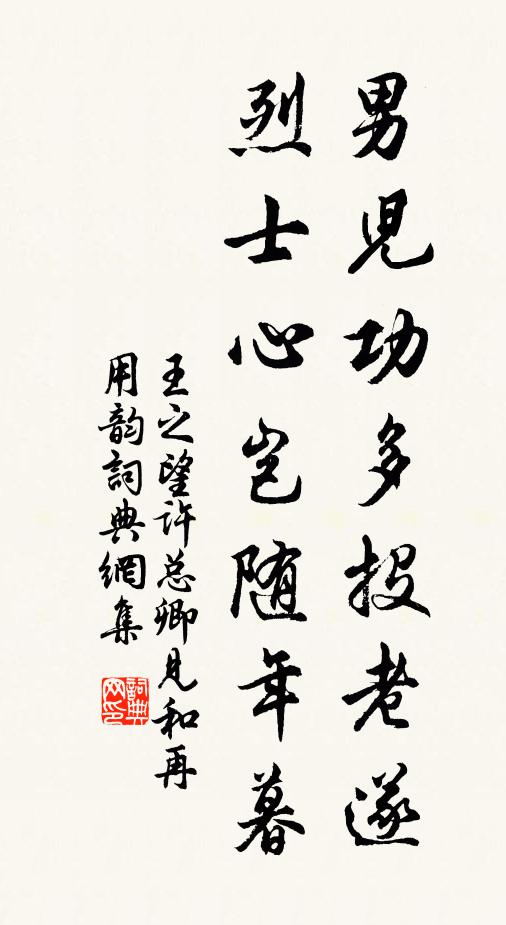 男兒功多投老遂
烈士心豈随年暮
王之望许总卿見和再
用韵詞典網集
詞典
网印